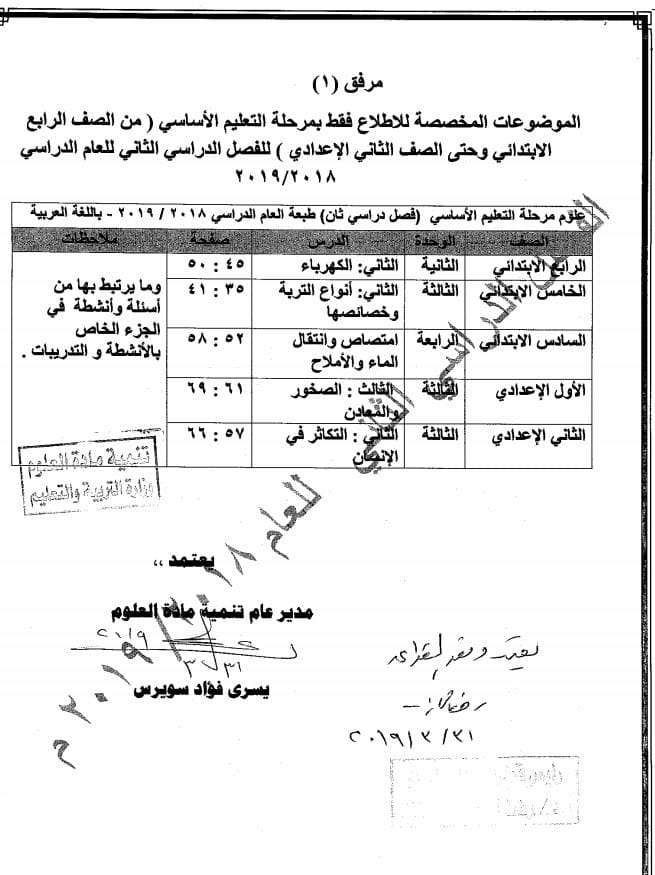 مرفق (١)
الموضوعات المخصصة للاطلاع فقط بمرحلة التعليم الأساسي ( من الصف الرابع
الابتدائي وحتى الصف الثاني الإعدادي ) للفصل الدراسي الثاني للعام الدراسي
٢٠١٩/٢٠١٨
علوم مرحلة التعليم الأساسي (فصل دراسي ثان) طبعة العام الدراسي ٢٠١٨ / ٢٠١٩ - باللغة العربية
الصف الوحدة الدرس صفحة ملاحظات
الرابع الابتدائي الثانية الثاني: الكهرباء ٤٥ : ٥٠
الخامس الابتدائي الثالثة الثاني: أنواع التربة ٣٥ : ٤١
وخصائصها
السادس الابتدائي الرابعة امتصاص وانتقال ٥٢ : ٥٨
الماء والأملاح
الأول الإعدادي الثالثة الثالث : الصخور ٦١ : ٦٩
والمعادن
الثاني الإعدادي الثالثة الثاني : التكاثر في ٥٧ : ٦٦
الإنسان
وما يرتبط بها من
أسئلة وأنشطة في
الجزء الخاص
بالأنشطة و التدريبات .
الفصل الدراسي الثاني للعام ٢٠١٨ / ٢٠١٩ م
تنمية مادة العلوم
وزارة التربية والتعليم
يعتمد ،،
مدير عام تنمية مادة العلوم
٢٠١٩
٣/٣١
يسرى فؤاد سويرس
٢٠١٩/٣/٣١